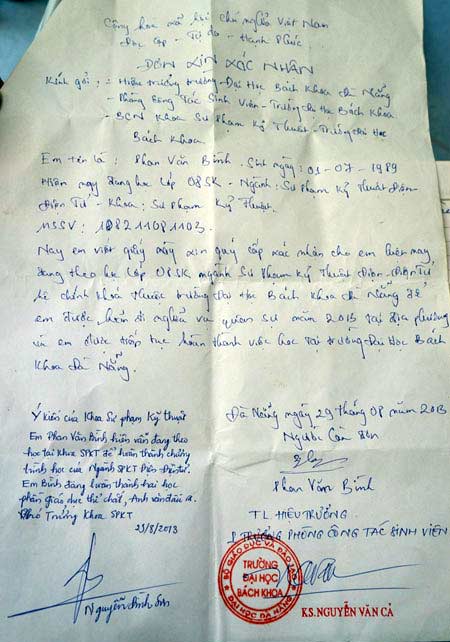 Cộng hoà xã hội chủ nghĩa Việt Nam
Độc lập - Tự do - Hạnh Phúc
ĐƠN XIN XÁC NHẬN
Kính gởi: - Hiệu trưởng trường Đại Học Bách Khoa Đà Nẵng
- Phòng Công Tác Sinh Viên - Trường Đại Học Bách Khoa
- BCN Khoa Sư Phạm Kỹ Thuật - Trường Đại Học
Bách Khoa
Em tên là: Phan Văn Bính. Sinh ngày: 01-07-1989
Hiện nay đang học lớp 08SK - Ngành: Sư Phạm Kỹ Thuật Điện
Điện Tử - Khoa: Sư Phạm Kỹ Thuật.
MSSV: 108211081103
Nay em viết giấy này xin quý cấp xác nhận cho em hiện nay
đang theo học lớp 08SK ngành Sư Phạm Kỹ Thuật Điện - Điện Tử
hệ chính khoá thuộc trường Đại Học Bách Khoa Đà Nẵng để
em được hoãn đi nghĩa vụ quân sự năm 2013 tại địa phương
và em được tiếp tục hoàn thành việc học tại trường Đại Học Bách
Khoa Đà Nẵng.
Đà Nẵng ngày 29 tháng 08 năm 2013
Người Làm Đơn
Phan Văn Bính
Ý kiến của Khoa Sư phạm Kỹ thuật
Em Phan Văn Bính hiện vẫn đang theo
học tại Khoa SPKT để hoàn thành chương
trình học của Ngành SPKT Điện Điện tử.
Em Bính đang hoàn thành hai học
phần giáo dục thể chất, Anh văn
Phó Trưởng Khoa SPKT
29/8/2013
Nguyễn Đình Sơn
TL HIỆU TRƯỞNG
P TRƯỞNG PHÒNG CÔNG TÁC SINH VIÊN
BỘ GIÁO DỤC VÀ ĐÀO TẠO
TRƯỜNG
ĐẠI HỌC
BÁCH KHOA
ĐẠI HỌC ĐÀ NẴNG
KS.NGUYỄN VĂN CẢ